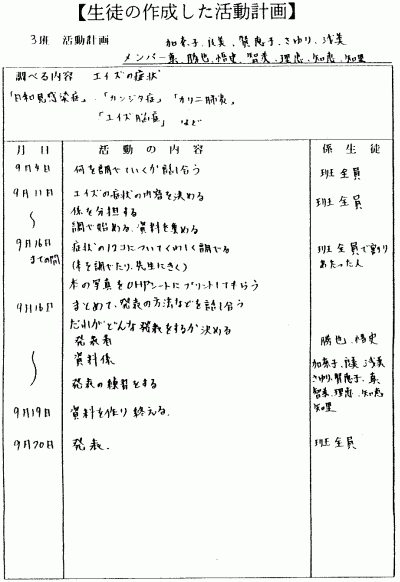 【生徒の作成した活動計画】
3班 活動計画 加奈子、良美、賢恵子、さゆり、浅美
メンバー 真、勝也、悟史、智美、理恵、知恵、知里
調べる内容 エイズの症状
「日和見感染症」、「カンジタ症」「カリニ肺炎」
「エイズ脳症」 など
月 日 活 動 の 内 容 係 生 徒
9月4日 何を調べていくか話し合う 班全員
9月11日 エイズの症状の内容を決める 班全員
〜 係を分担する
調べ始める、資料を集める
9月16日 症状の1つ1つについてくわしく調べる 班全員で割り
までの間 (本を調べたり、先生にきく) あたった人
本の写真をOHPシートにプリントしてもらう
9月16日 まとめて、発表の方法などを話し合う
だれがどんな発表をするか決める
発表者 勝也、悟史
〜 資料係 加奈子、良美、浅美
発表の練習をする さゆり、賢恵子、真、
智美、理恵、知恵
9月19日 資料を作り終える。 知里
9月20日 発表. 班全員